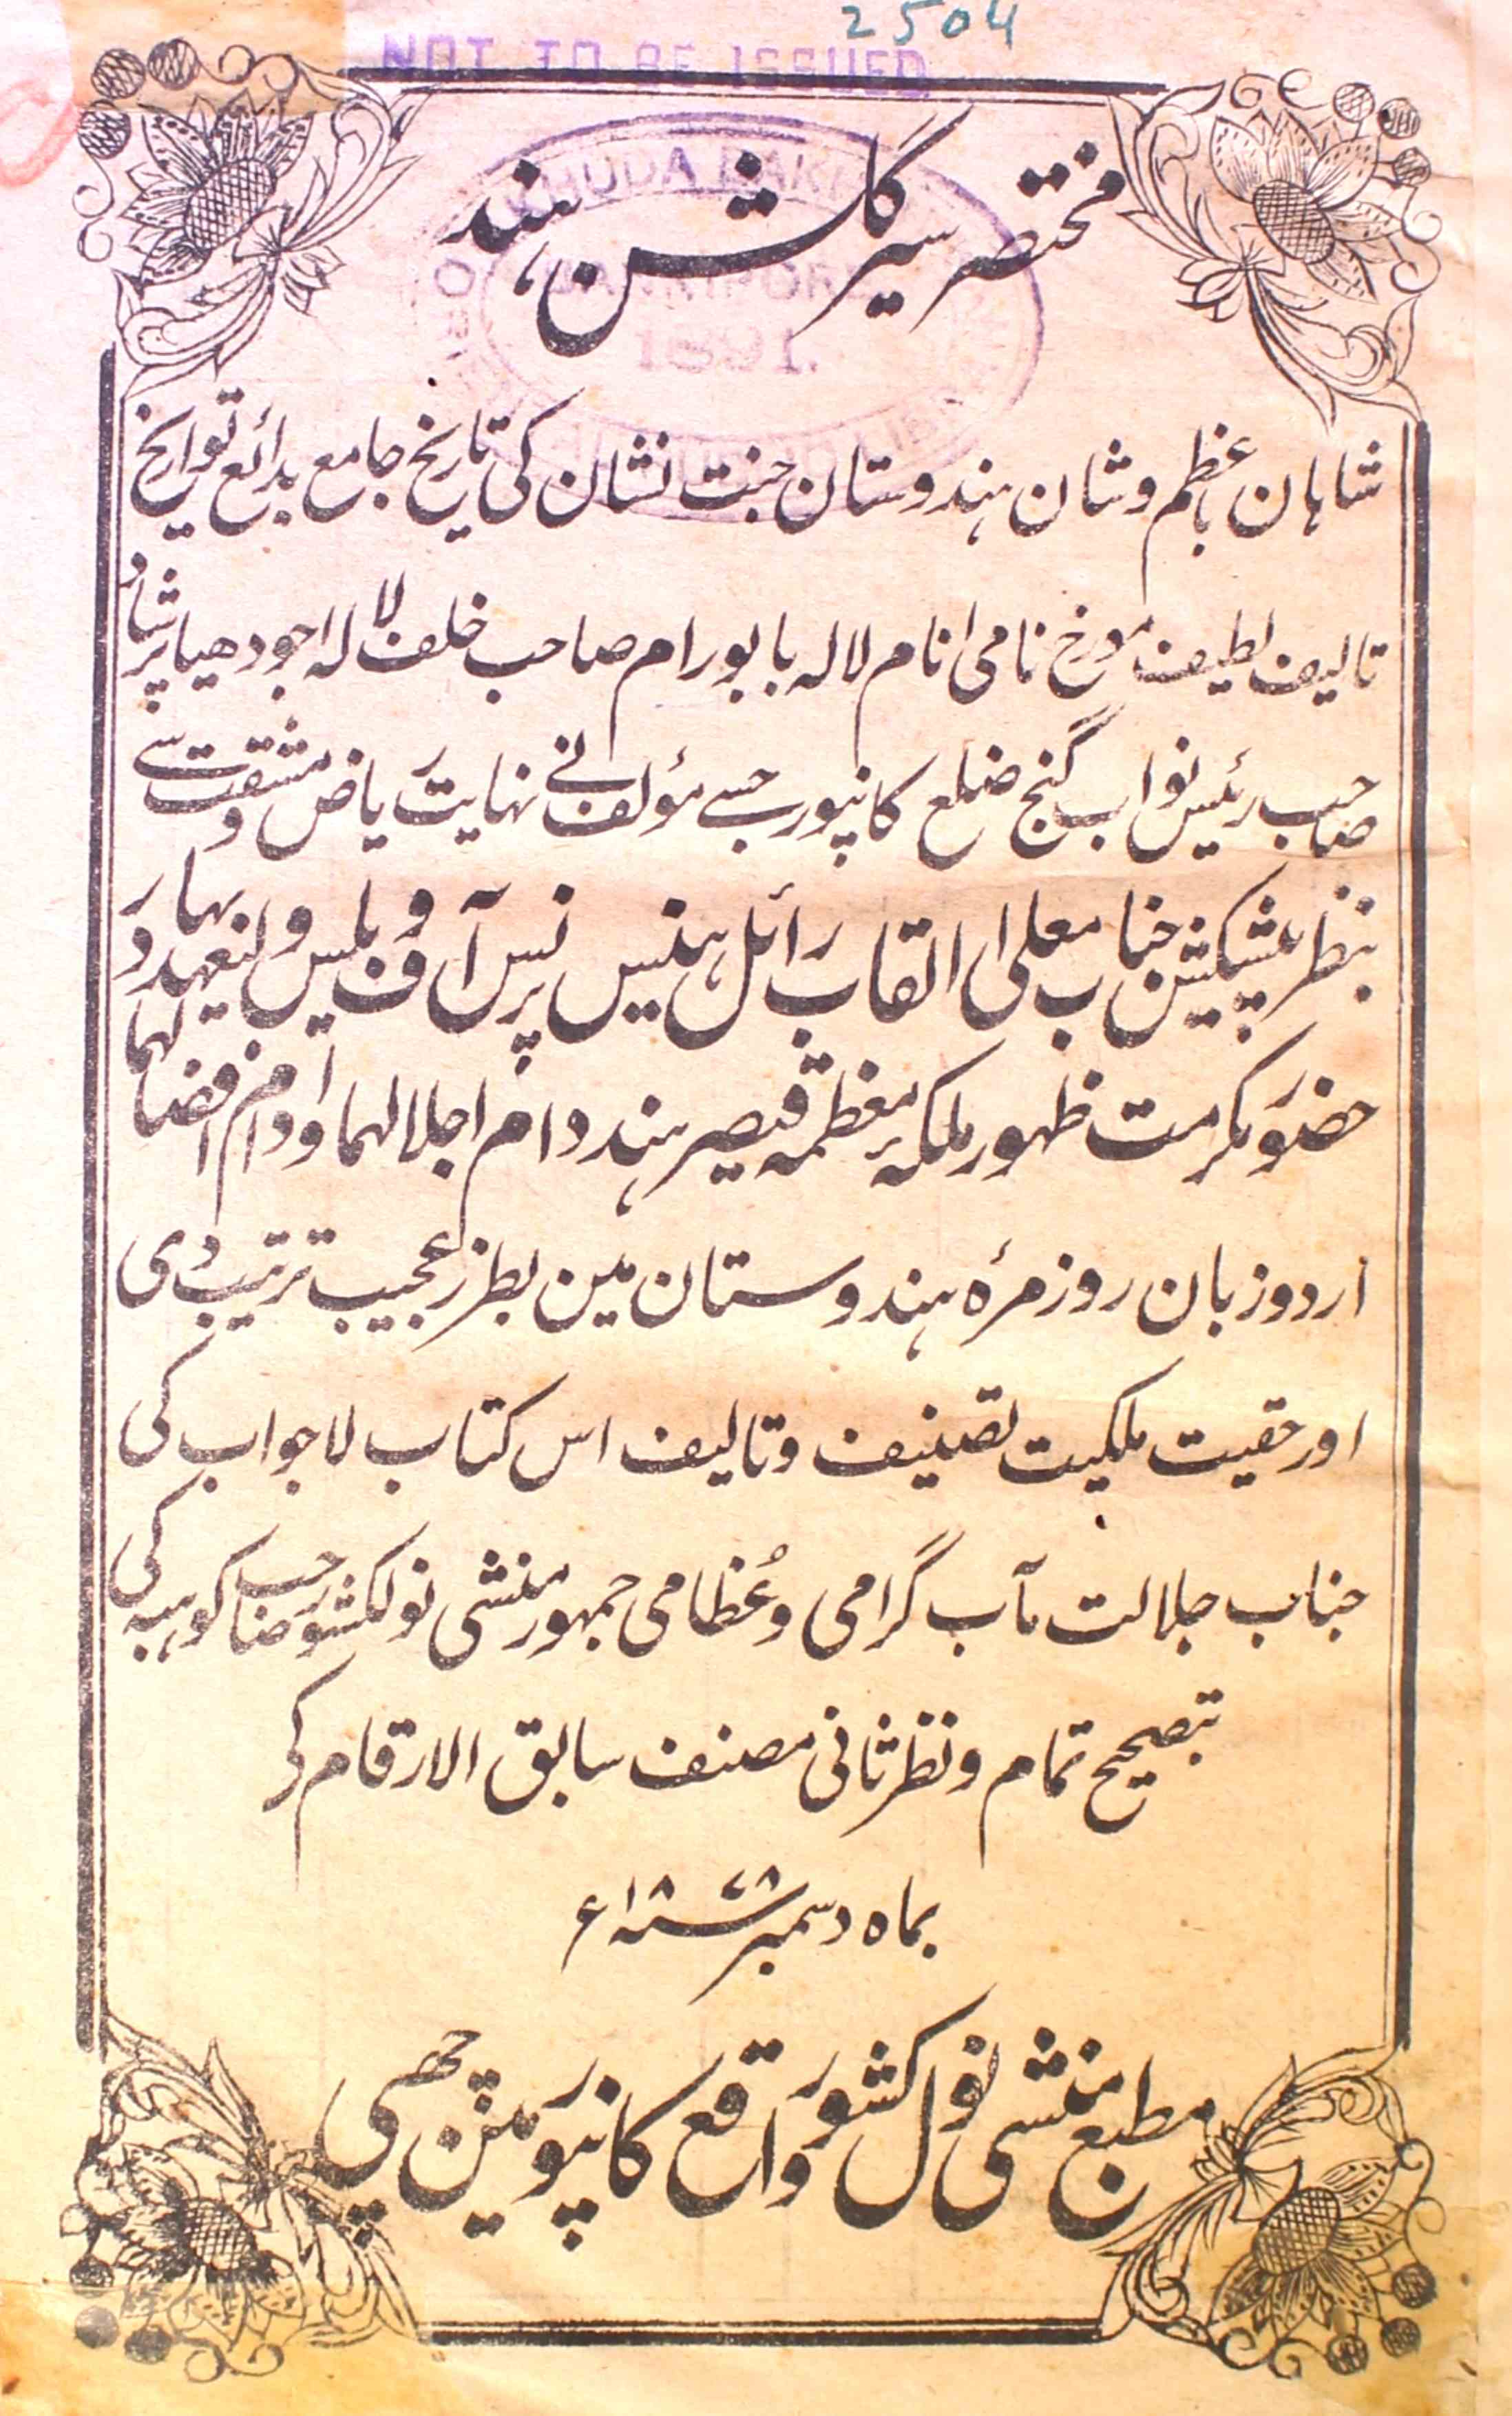 2504
NOT TO BE ISSUED
مختصر سیر گلشن ہند
KHUDA BAKH
BANKIPORE
1891.
شاہان باعظم وشان ہندوستان جنت نشان کی تاریخ جامع بدائع تواریخ
تالیف لطیف مورخ نامی انام لالہ بابورام صاحب خلف لالہ اجودھیا پرشاد
صاحب رئیس نواب گنج ضلع کانپور جسے مؤلف نے نہایت ریاض و مشقت سے
بنظر پیشکش جناب معلی القاب رائل ہنیس پرنس آف ویلس ولیعہد بہادر
حضور مکرمت ظہور ملکۂ معظمہ قیصر ہند دام اجلالہما و دام افضالہما
اردو زبان روزمرۂ ہندوستان مین بطرز عجیب ترتیب دی
اور حقیت ملکیت تصنیف وتالیف اس کتاب لاجواب کی
جناب جلالت مآب گرامی وعُظامی جمہور منشی نولکشور صاحب کو ہبہ کی
بتصحیح تمام ونظر ثانی مصنف سابق الارقام کی
بماہ دسمبر ۱۸۷۸ء
مطبع منشی نول کشور واقع کانپور مین چھپی